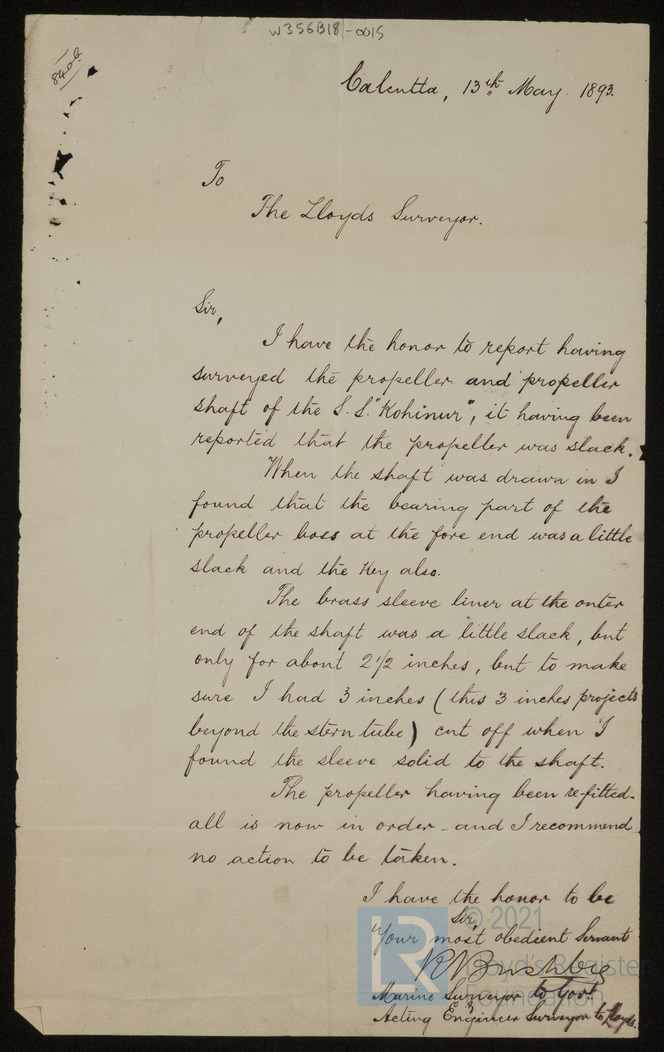 W356B18-0015
Calcutta, 13th May. 1893.
To
The Lloyds Surveyor.
Sir,
I have the honor to report having
surveyed the propeller and propeller
shaft of the S.S. "Kohinur", it having been
reported that the propeller was slack.
When the shaft was drawn in I
found that the bearing part of the
propeller boss at the fore end was a little
slack and the Key also.
The brass sleeve liner at the outer
end of the shaft was a little slack, but
only for about 2 1/2 inches, but to make
sure I had 3 inches (this 3 inches projects
beyond the stern tube) cut off when I
found the sleeve solid to the shaft.
The propeller having been re-fitted-
all is now in order - and I recommend
no action to be taken.
I have the honor to be
Sir,
Your most obedient Servant
Marine Surveyor to Govt
Acting Engineer Surveyor to Lloyds.
LR © 2021
Lloyd's Register
Foundation